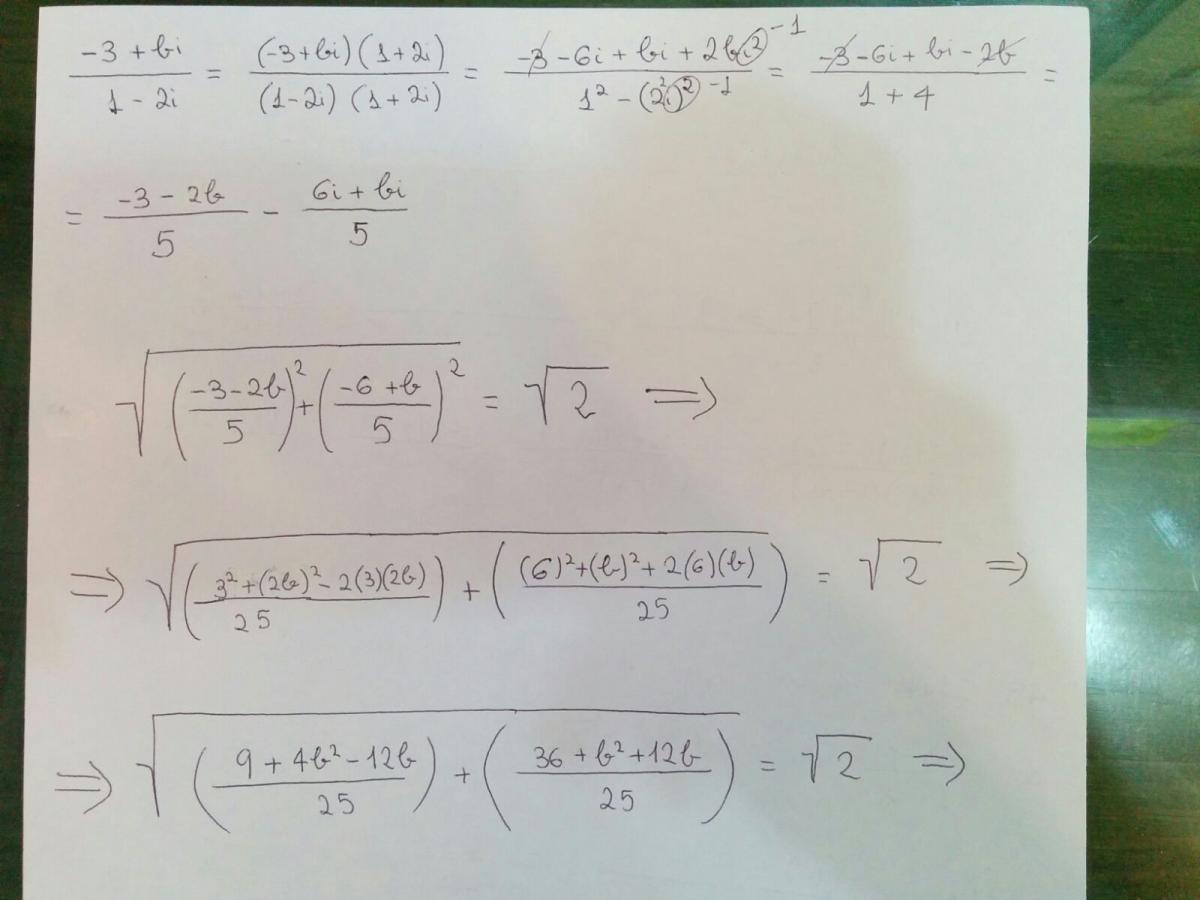 (-3 + bi)/(1 - 2i) = ((-3+bi)(1+2i))/((1-2i)(1+2i)) = (-3 - 6i + bi + 2bi² -1)/(1² - (2²i)² -1) = (-3 - 6i + bi - 2b)/(1 + 4) =
= (-3 - 2b)/5 - (6i + bi)/5
√(((-3-2b)/5)² + ((-6+b)/5)²) = √2 ⟹
⟹ √(((3²+(2b)²-2(3)(2b))/25) + (((6)²+(b)²+2(6)(b))/25)) = √2 ⟹
⟹ √(((9+4b²-12b)/25) + ((36+b²+12b)/25)) = √2 ⟹